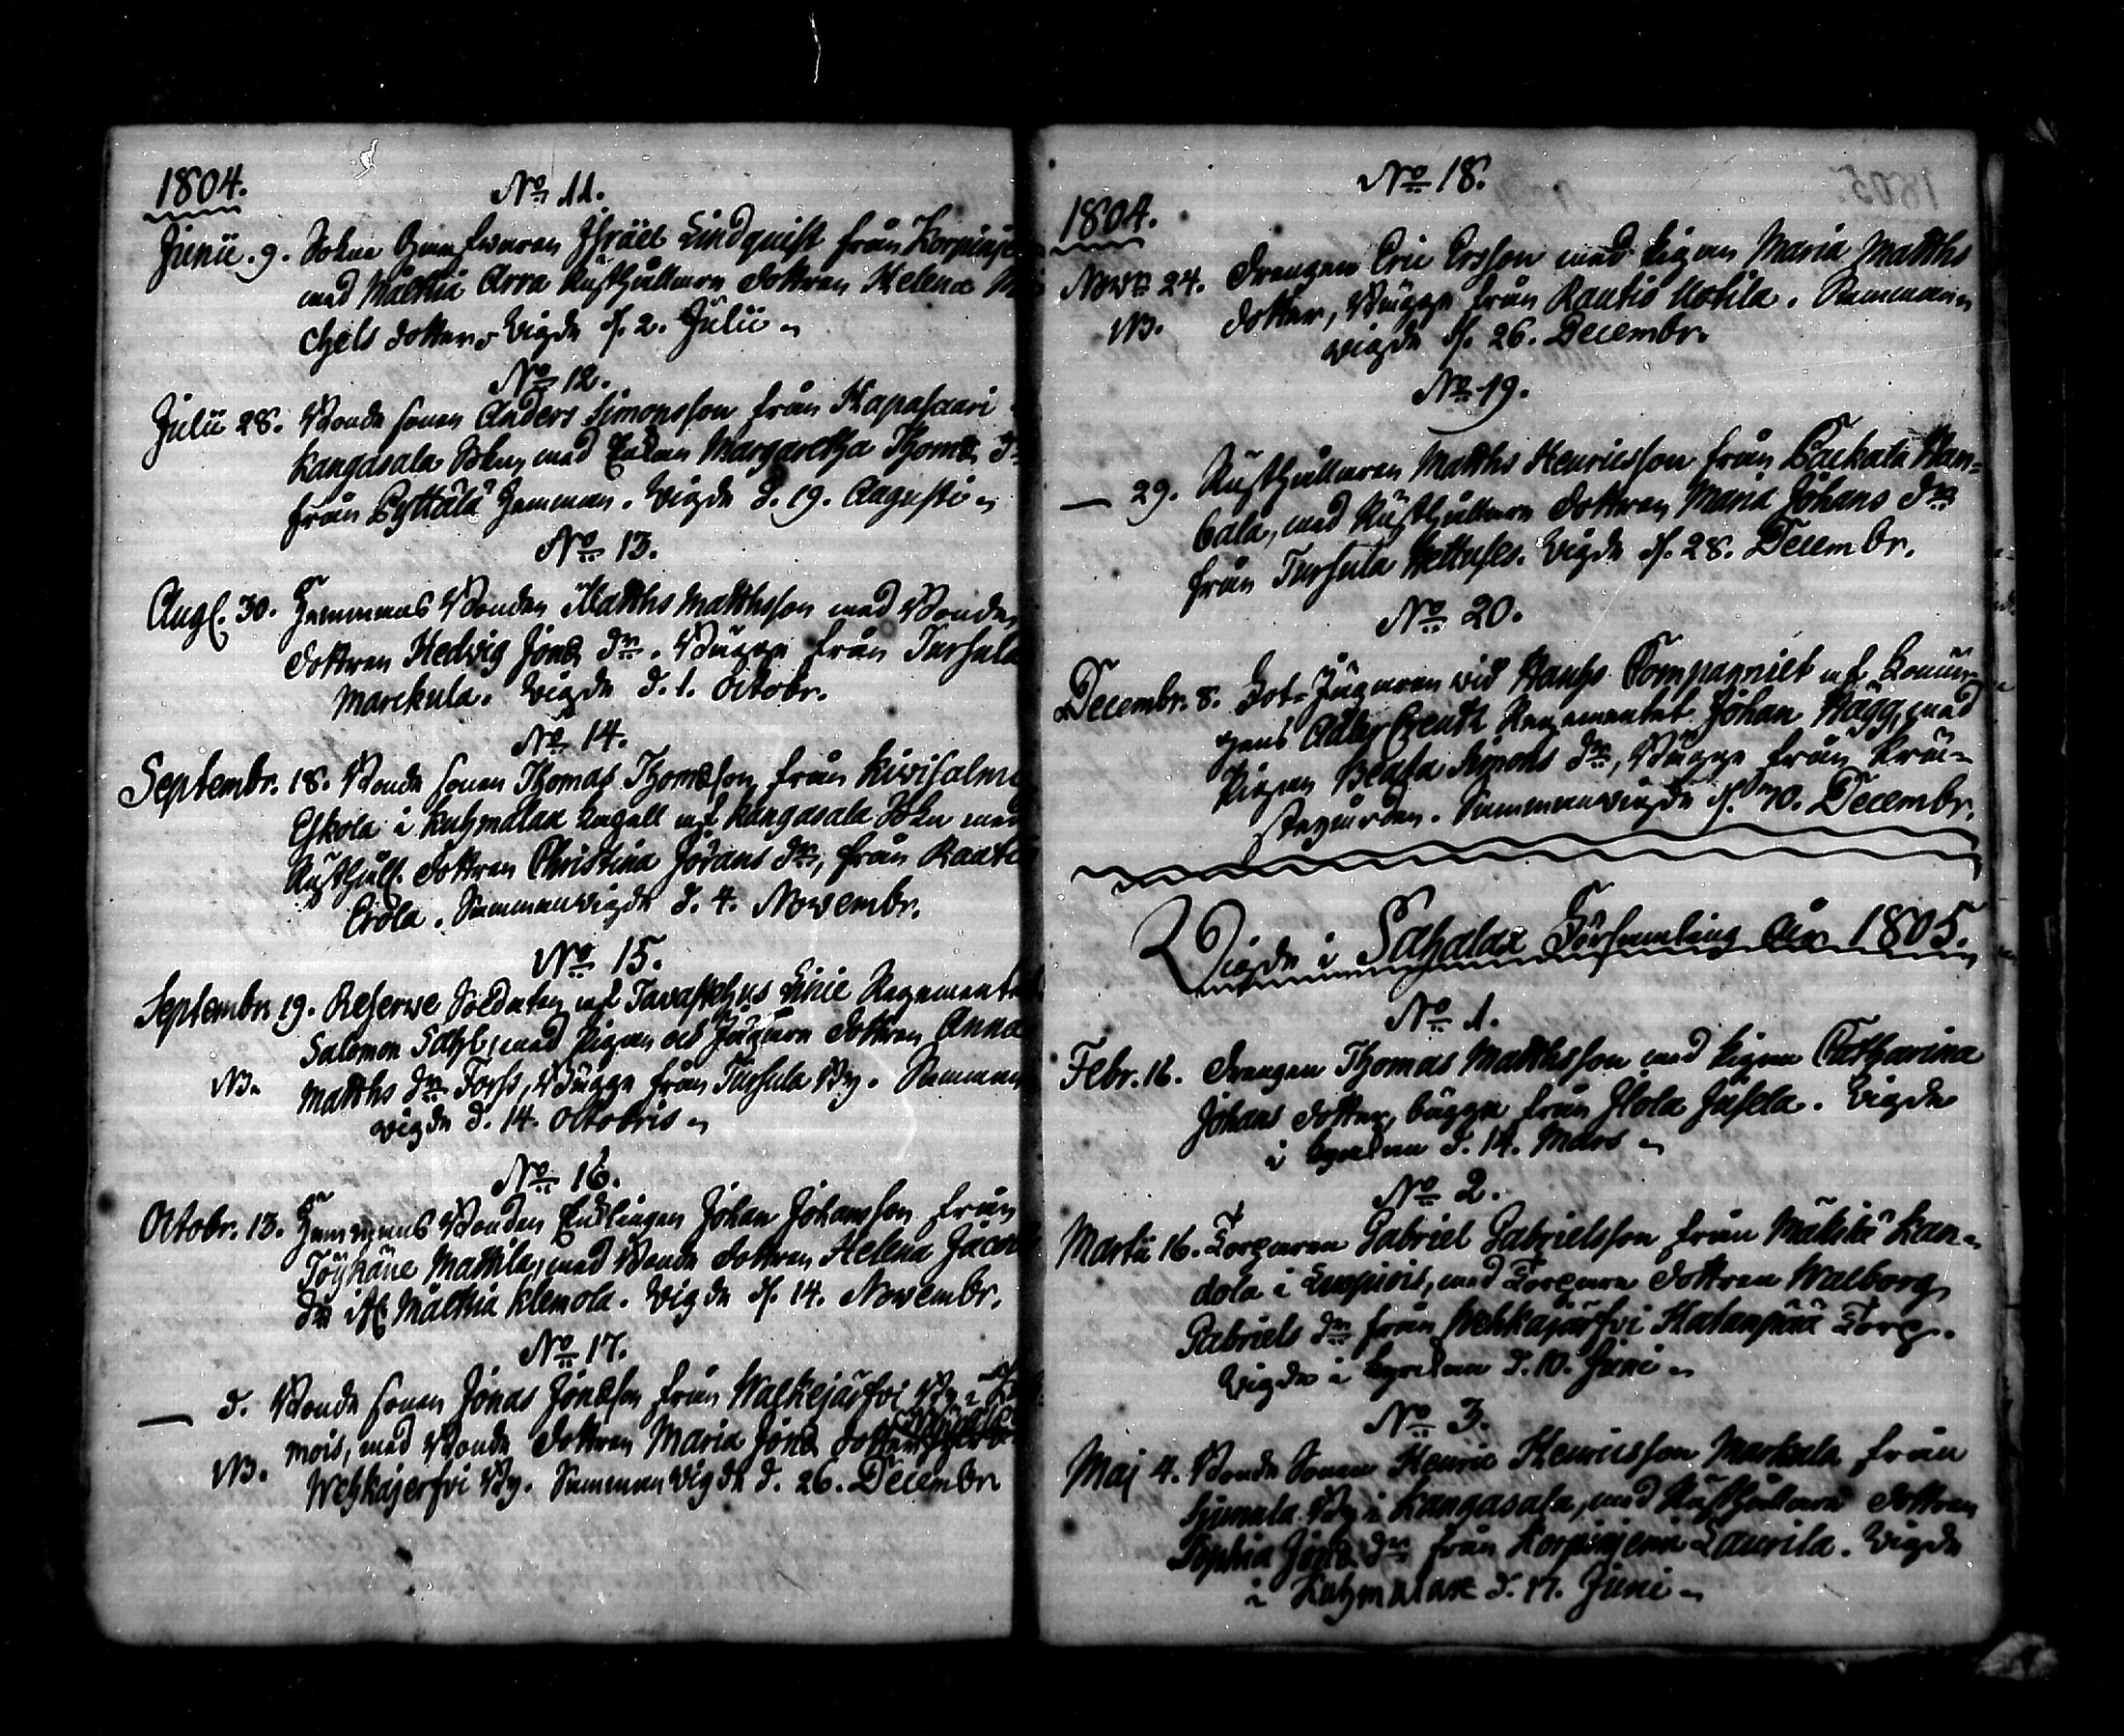 1804.
No 11.
Junii. 9. Sokne från Israël Lindquist från Korpinje
med Mälkiä Arra Rusthållare dottren Helena Mi
chels dotter, Vigde d. 2. Julii
No 12.
Julii 28. Bonde sonen Anders Simonsson från Hapasaari
Kangasala Sokn, med Enkan Margaretha Thomæ Dr
från Pyttälä hemman. Vigde d. 19. Augusti
No 13.
Aug. 30. Hemmans Bonden Matths Matthsson med Bonde
dottren Hedvig Jonæ dr. Bägge från Tursula
Marckula. Vigde d. 1. Octobr.
No 14.
Septembr. 18. Bonde sonen Thomas Thomæsson från Kivisalmi
Eskola i Kuhmalax Capell af Kangasala Sokn med
Rusthåll. dottren Christina Jörans dr, från Rauti
Erola. Sammanvigde d. 4. Novembr.
No 15.
Septembr. 19. Reserve Soldaten af Tavastehus Linie Regemente
Salomon Sahl, med Pigan och Jägare dottren Anna
NB. Matths dr Forss, Bägge från Tursula By. Samman
vigde d. 14. Octobris
No 16.
Octobr. 13. Hemmans Bonden Enklingen Johan Johansson från
Töyhäne Mattila, med Bonde dottren Helena Jacobs
dr ifr. Mälkiä Klemola. Vigde d. 14. Novembr.
No 17.
— d. Bonde sonen Jonas Jonæsson från Walkejärfvi By i
NB. mois, med Bonde dottren Maria Jonæ dotter
Wehkajerfvi By. Sammanvigde d. 26. Decembr
No 18.
1804.
Novr 24. Drengen Eric Ersson med Pigan Maria Matths
NB. dotter, Bägge från Rautio Uotila. Samman
vigde d. 26. Decembr.
No 19.
— 29. Rusthållaren Matths Henricsson från Packala Ham=
bala, med Rusthållare dottren Maria Johans dr
från Tursula Hettules. Vigde d. 28. Decembr.
No 20.
Decembr. 8. Fot=Jägaren vid Compagniet af Konun
gens Adlercreutz Regementet Johan Hägg, med
Pigan Beata Simons dr, Bägge från Prä=
stegården. Sammanvigde d. 30. Decembr.
Vigde i Sahalax Församling År 1805.
No 1.
Febr. 16. Drengen Thomas Matthsson med Pigan Catharina
Johans dotter, bägge från Ilola Jusela. Vigde
i kyrkan d. 14. Mars
No 2.
Martii 16. Torparen Gabriel Gabrielsson från Mäkilä Kan=
dola i Luopiois, med Torpare dottren Walborg
Gabriels dr från Wehkajärfvi Hatanpää Torp.
Vigde i kyrkan d. 10. Juni
No 3.
Maj 4. Bonde Sonen Henric Henricsson Markula från
By i Kangasala, med Rusthållare dottren
Sophia Jonæ dr från Korpinjemi Laurila. Vigde
i Kuhmalax d. 17. Juni